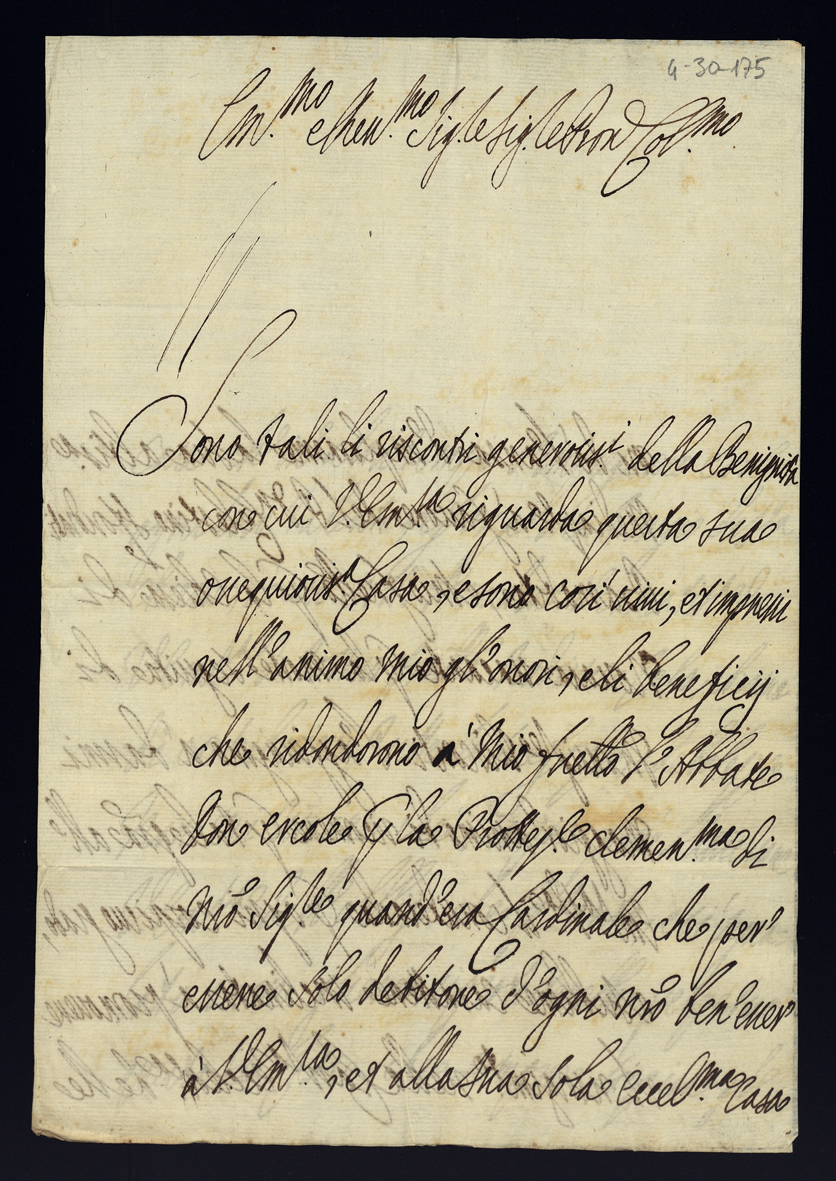 4-30-175
Em.mo e Rev.mo Sig.re Sig.re e Pron Col.mo
Sono tali li riscontri generosis.i della Benignità
con cui V. Em.za riguarda questa sua
ossequiosis.a Casa, e sono così vivi, et impressi
nell'animo mio gl'onori, e li beneficij
che ridondorono à mio fratello l'Abbate
Don Ercole p la Prottez.e clemen.ma di
nrô Sig.re quand'era Cardinale che per
essere solo debitore d'ogni nrô ben'esser
à V. Em.za, et alla sua sola Eccel.ma Casa